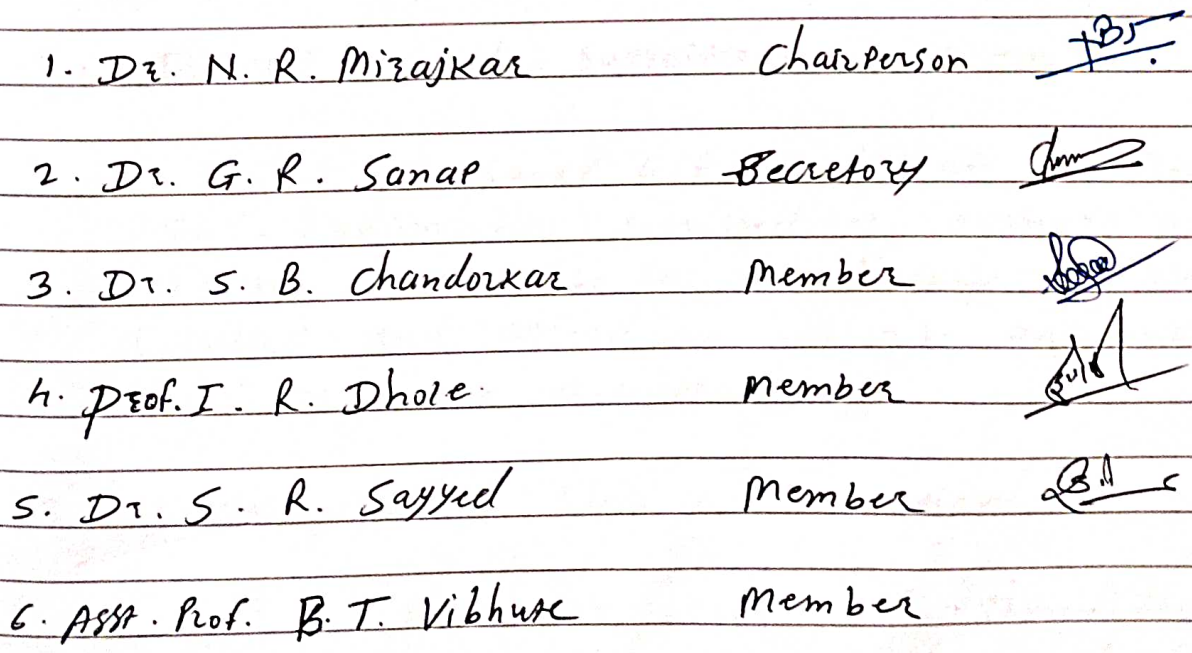 1. Dr. N. R. Mirajkar Chairperson
2. Dr. G. R. Sanap Secretory
3. Dr. S. B. Chandorkar Member
4. Prof. I. R. Dhole. Member
5. Dr. S. R. Sayyed Member
6. Asst. Prof. B. T. Vibhute Member